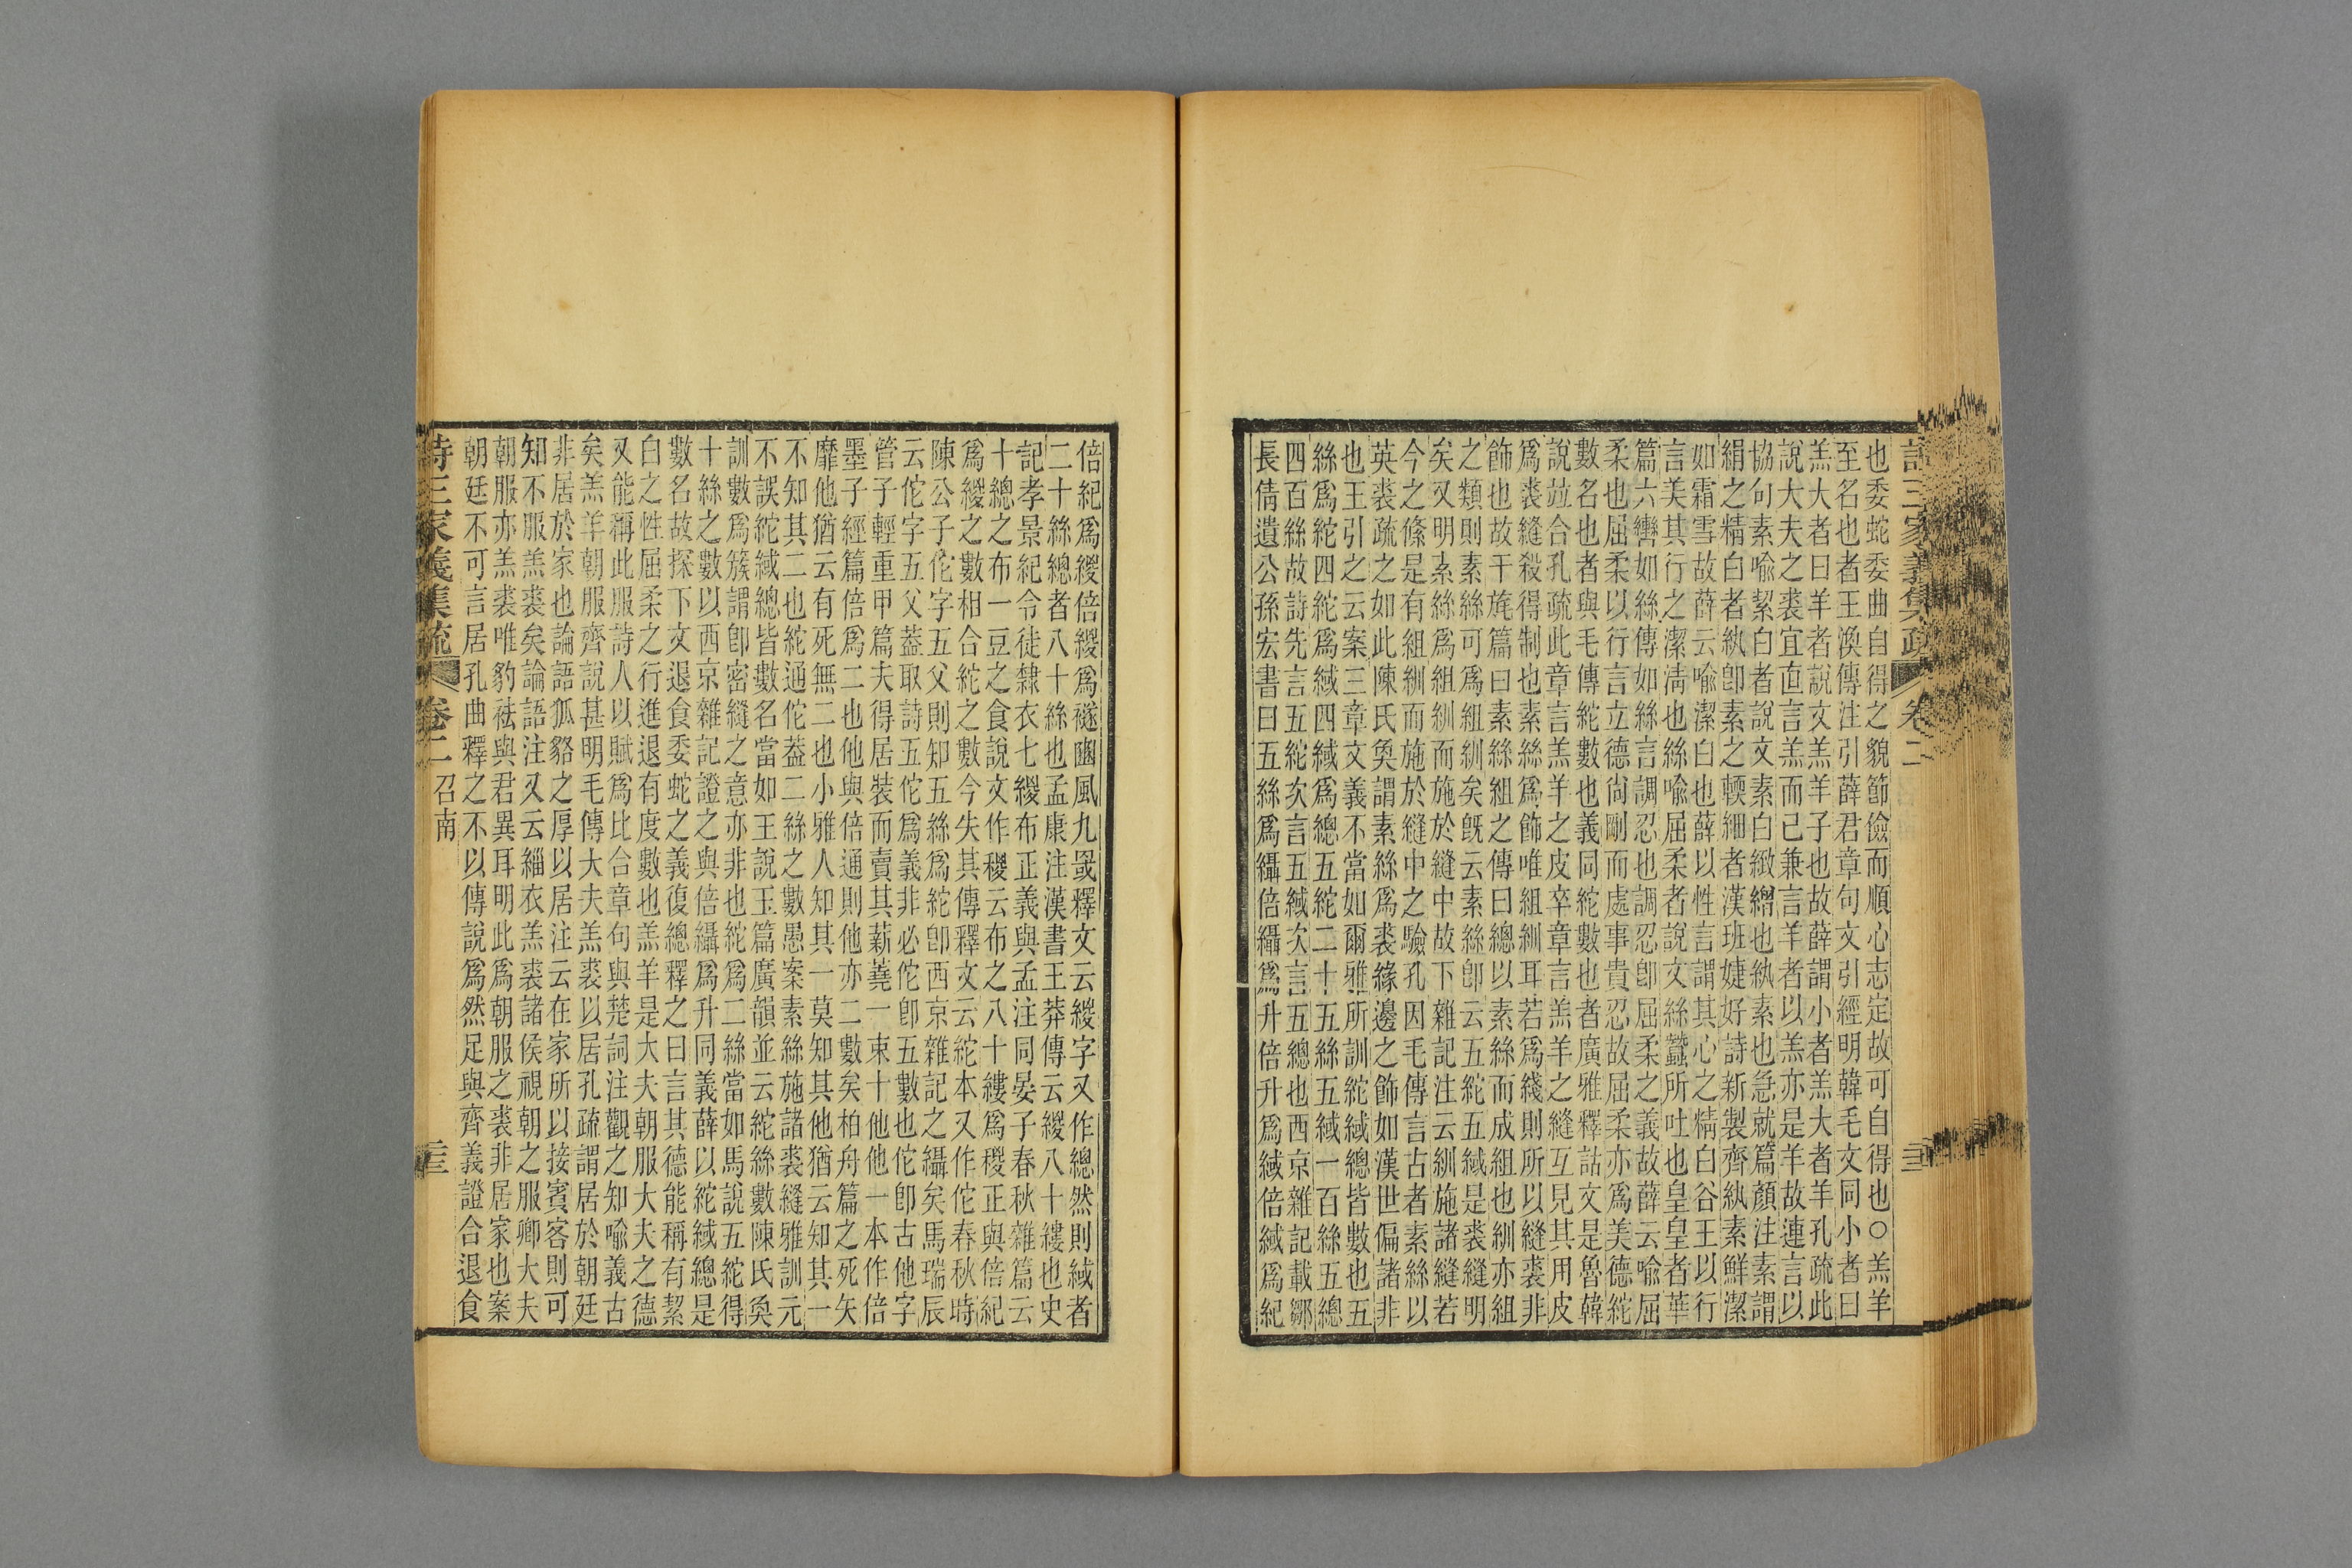 詩三家義集疏 卷二
也委蛇委曲自得之貌節儉而順心志定故可自得也○羔羊
至名也者王渙傳注引薛君章句文引經明韓毛文同小者曰
羔大者曰羊者說文羔羊子也故薛謂小者羔大者羊孔疏此
說大夫之裘宜直言羔而已兼言羊者以羔亦是羊故連言以
協句素喻絜白者說文素白緻繒也紈素也急就篇顏注素謂
絹之精白者紈卽素之輭細者漢班婕妤詩新製齊紈素鮮潔
如霜雪故薛云喻潔白也薛以性言謂其心之精白谷王以行
言美其行之潔淸也絲喻屈柔者說文絲蠶所吐也皇皇者華
篇六轡如絲傳如絲言調忍也調忍卽屈柔之義故薛云喻屈
柔也屈柔以行言立德尙剛而處事貴忍故屈柔亦爲美德紽
數名也者與毛傳紽數也義同紽數也者廣雅釋詁文是魯韓
說竝合孔疏此章言羔羊之皮卒章言羔羊之縫互見其用皮
爲裘縫殺得制也素絲爲飾唯組紃耳若爲綫則所以縫裘非
飾也故干旄篇曰素絲組之傳曰總以素絲而成組也紃亦組
之類則素絲可爲組紃矣旣云素絲卽云五紽五緎是裘縫明
矣又明素絲爲組紃而施於縫中故下雜記注云紃施諸縫若
今之絛是有組紃而施於縫中之驗孔因毛傳言古者素絲以
英裘疏之如此陳氏奐謂素絲爲裘緣邊之飾如漢世偏諸非
也王引之云案三章文義不當如爾雅所訓紽緎總皆數也五
絲爲紽四紽爲緎四緎爲總五紽二十五絲五緎一百絲五總
四百絲故詩先言五紽次言五緎次言五總也西京雜記載鄒
長倩遺公孫宏書曰五絲爲䌰倍䌰爲升倍升爲緎倍緎爲紀
倍紀爲緵倍緵爲襚豳風九罭釋文云緵字又作總然則緎者
二十絲總者八十絲也孟康注漢書王莽傳云緵八十縷也史
記孝景紀令徒隸衣七緵布正義與孟注同晏子春秋雜篇云
十總之布一豆之食說文作稯云布之八十縷爲稯正與倍紀
爲緵之數相合紽之數今失其傳釋文云紽本又作佗春秋時
陳公子佗字五父則知五絲爲紽卽西京雜記之䌰矣馬瑞辰
云佗字五父蓋取詩五佗爲義非必佗卽五數也佗卽古他字
管子輕重甲篇夫得居裝而賣其薪蕘一束十他他一本作倍
墨子經篇倍爲二也他與倍通則他亦二數矣柏舟篇之死矢
靡他猶云有死無二也小雅人知其一莫知其他猶云知其一
不知其二也紽通佗葢二絲之數愚案素絲施諸裘縫雅訓元
不誤紽緎總皆數名當如王說玉篇廣韻並云紽絲數陳氏奐
訓數爲簇謂卽密縫之意亦非也紽爲二絲當如馬說五紽得
十絲之數以西京雜記證之與倍䌰爲升同義薛以紽緎總是
數名故探下文退食委蛇之義復總釋之曰言其德能稱有絜
白之性屈柔之行進退有度數也羔羊是大夫朝服大夫之德
又能稱此服詩人以賦爲比合章句與楚詞注觀之知喻義古
矣羔羊朝服齊說甚明毛傳大夫羔裘以居孔疏謂居於朝廷
非居於家也論語狐貉之厚以居注云在家所以接賓客則可
知不服羔裘矣論語注又云緇衣羔裘諸侯視朝之服卿大夫
朝服亦羔裘唯豹袪與君異耳明此爲朝服之裘非居家也案
朝廷不可言居孔曲釋之不以傳說爲然足與齊義證合退食
詩三家義集疏 卷二 召南